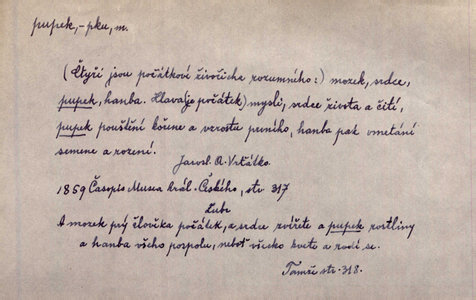 pupek, -pku, m.
(Čtyři jsou počátkové živočicha rozumného:) mozek, srdce,
pupek, hanba. Hlava (je počátek) mysli, srdce života a čití,
pupek pouštění kořene a vzrostu prvního, hanba pak ometání
semene a rození.
Jarosl. A. Vrťátko
1859 Časopis Musea král. Českého, str 317
A mozek prý člověka počátek, a srdce zvířete a pupek rostliny
a hanba všeho pospolu, neboť všecko kvete a rodí se.
Tamže str. 318.